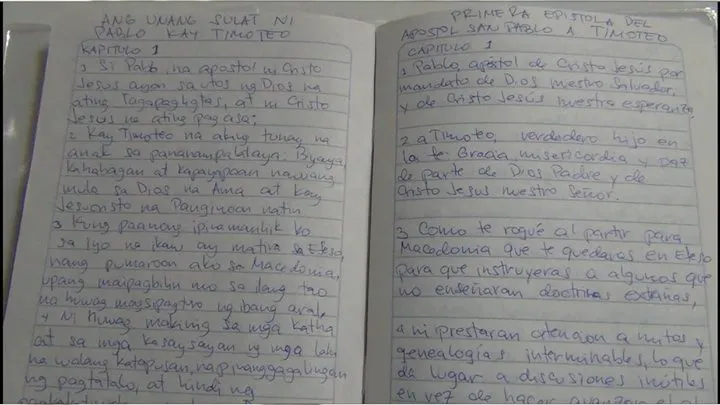 ANG UNANG SULAT NI
PABLO KAY TIMOTEO
KAPITULO 1
1 Si Pablo, na apostol ni Cristo
Jesus ayon sa utos ng Dios na
ating Tagapagligtas, at ni Cristo
Jesus na ating pagasa;
2 Kay Timoteo na aking tunay na
anak sa pananampalataya: Biyaya,
kahabagan at kapayapaan nawang
mula sa Dios na Ama at kay
Jesucristo na Panginoon natin
3 Kung paanong ipinamanhik ko
sa iyo na ikaw ay matira sa Efeso,
nang pumaroon ako sa Macedonia,
upang maipagbilin mo sa ilang tao
na huwag magsipagturo ng ibang aral,
4 Ni huwag makinig sa mga katha
at sa mga kasaysayan ng mga lahi
na walang katapusan, na pinanggagalingan
ng pagtatalo, at hindi ng
PRIMERA EPISTOLA DEL
APOSTOL SAN PABLO A TIMOTEO
CAPITULO 1
1 Pablo, apóstol de Cristo Jesús por
mandato de Dios nuestro Salvador,
y de Cristo Jesús nuestra esperanza,
2 a Timoteo, verdadero hijo en
la fe: Gracia, misericordia y paz
de parte de Dios Padre y de
Cristo Jesus nuestro Señor.
3 Como te rogué al partir para
Macedonia que te quedaras en Efeso
para que instruyeras a algunos que
no enseñaran doctrinas extrañas,
4 ni prestaran atencion a mitos y
genealogías interminables, lo que
da lugar a discusiones inútiles
en vez de hacer avanzar el